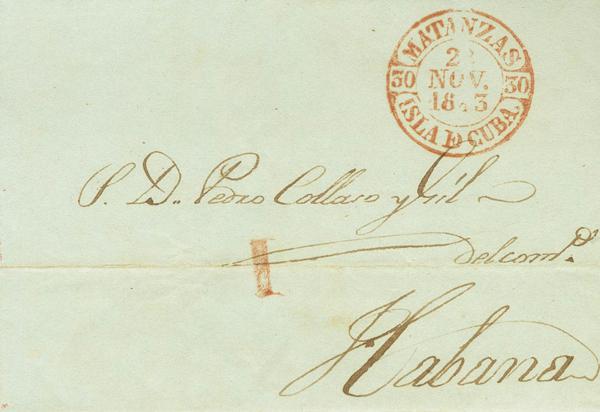 MATANZAS
30 30
NOV.
ISLA DE CUBA.
S. D. Pedro Collaso y Gil
I
del com.º
Habana